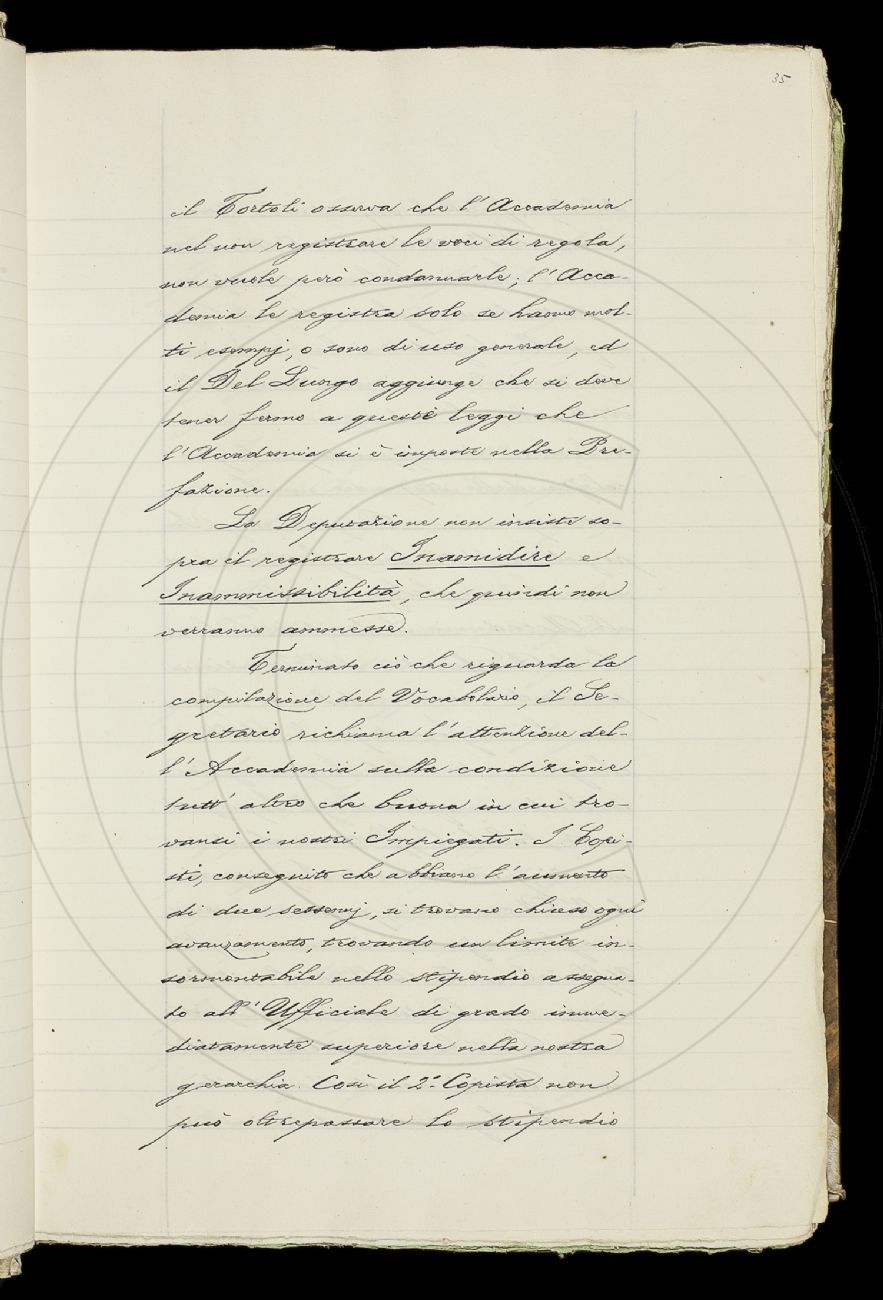 35
il Tortoli osserva che l'Accademia
nel non registrare le voci di regola,
non vuole però condannarle; l'Acca-
demia le registra solo se hanno mol-
ti esempj, o sono di uso generale, ed
il Del Lungo aggiunge che si deve
tener fermo a queste leggi che
l'Accademia si è imposte nella Pre-
fazione.
La Deputazione non insiste so-
pra il registrare Inamidire e
Inammissibilità, che quindi non
verranno ammesse.
Terminato ciò che riguarda la
compilazione del Vocabolario, il Se-
gretario richiama l'attenzione del-
l'Accademia sulla condizione
tutt'altro che buona in cui tro-
vansi i nostri Impiegati. I Copi-
sti, conseguito che abbiano l'aumento
di due sessennj, si trovano chiuso ogni
avanzamento, trovando un limite in-
sormontabile nello stipendio assegna-
to all'Ufficiale di grado imme-
diatamente superiore nella nostra
gerarchia. Così il 2.º Copista non
può oltrepassare lo stipendio